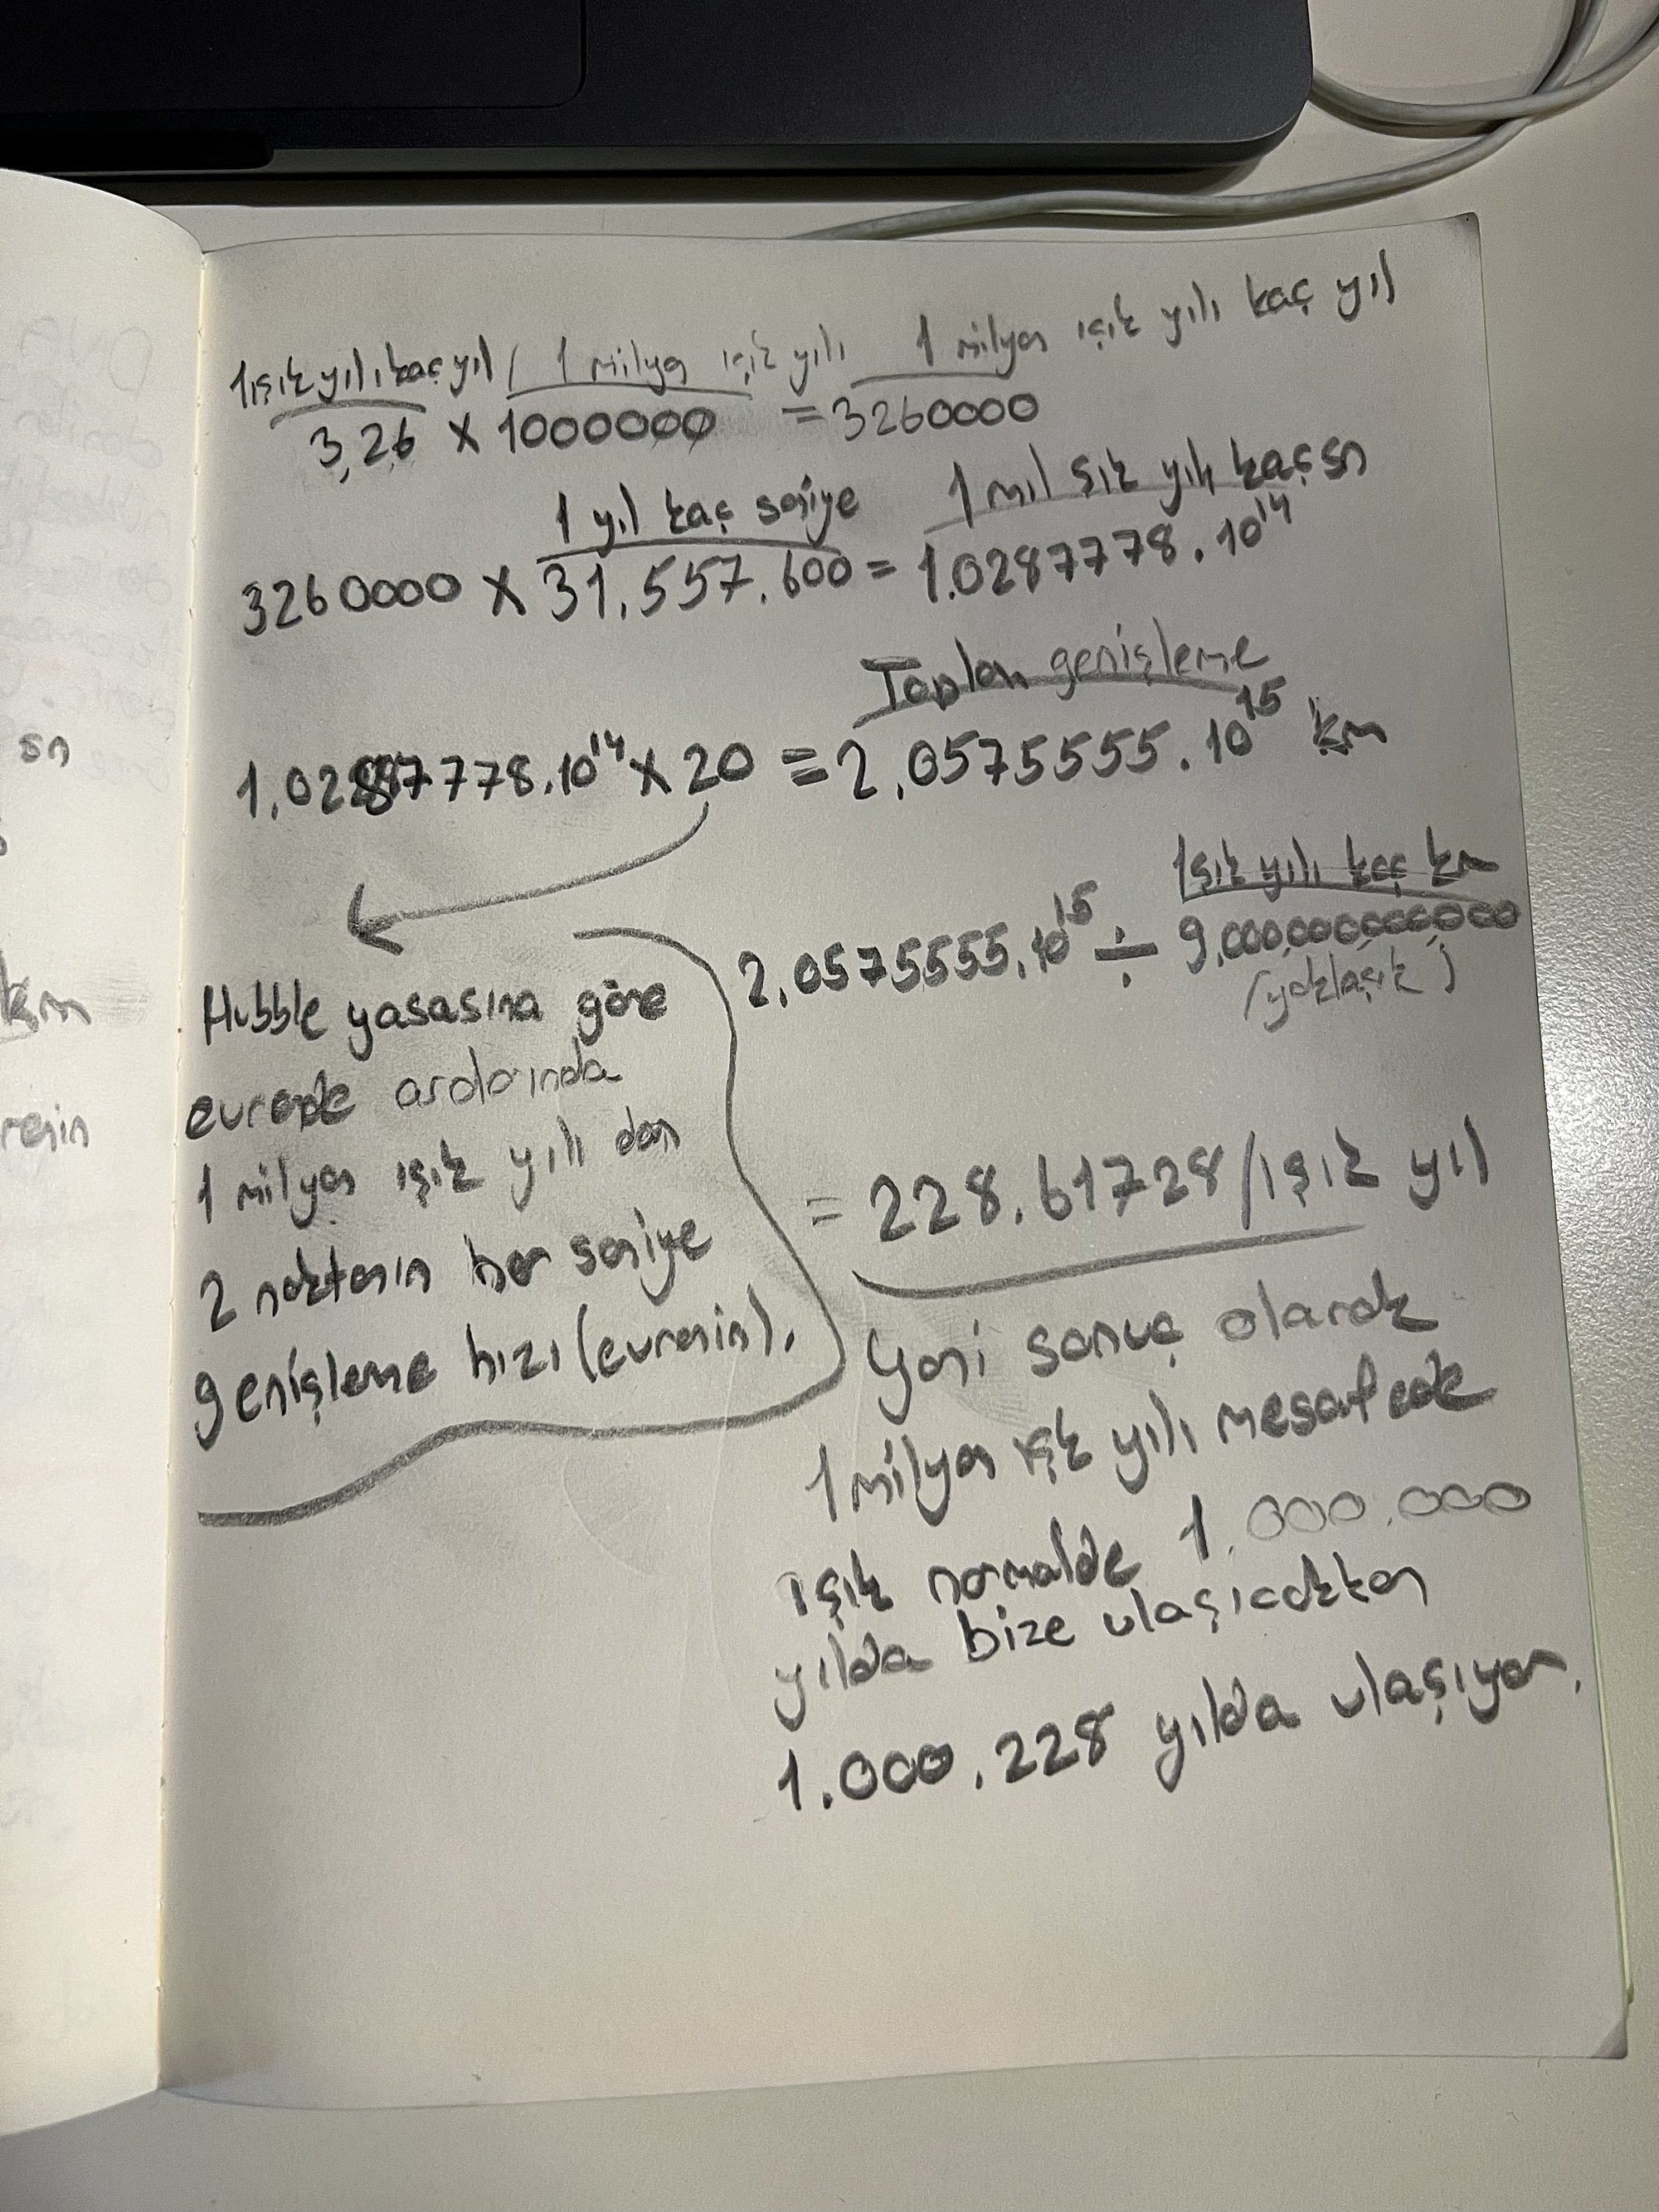 1 ışık yılı kaç yıl / 1 milyon ışık yılı 1 milyon ışık yılı kaç yıl
3,26 x 1000000 = 3260000
1 yıl kaç saniye 1 mil şık yılı kaç sn
3260000 x 31.557.600 = 1.0287778.10¹⁴
Toplam genişleme
1,02887778.10¹⁴ x 20 = 2,0575555.10¹⁵ km
Işık yılı kaç km
2,0575555.10¹⁵ ÷ 9,000,000,000,000
(yaklaşık)
Hubble yasasına göre
evrende aralarında
1 milyon ışık yılı olan
2 noktanın her saniye
genişleme hızı (evrenin).
= 228.61728/ışık yıl
yani sonuç olarak
1 milyon ışık yılı mesafedek
ışık normalde 1.000.000
yılda bize ulaşıcakken
1.000.228 yılda ulaşıyor.
sn
km
renin